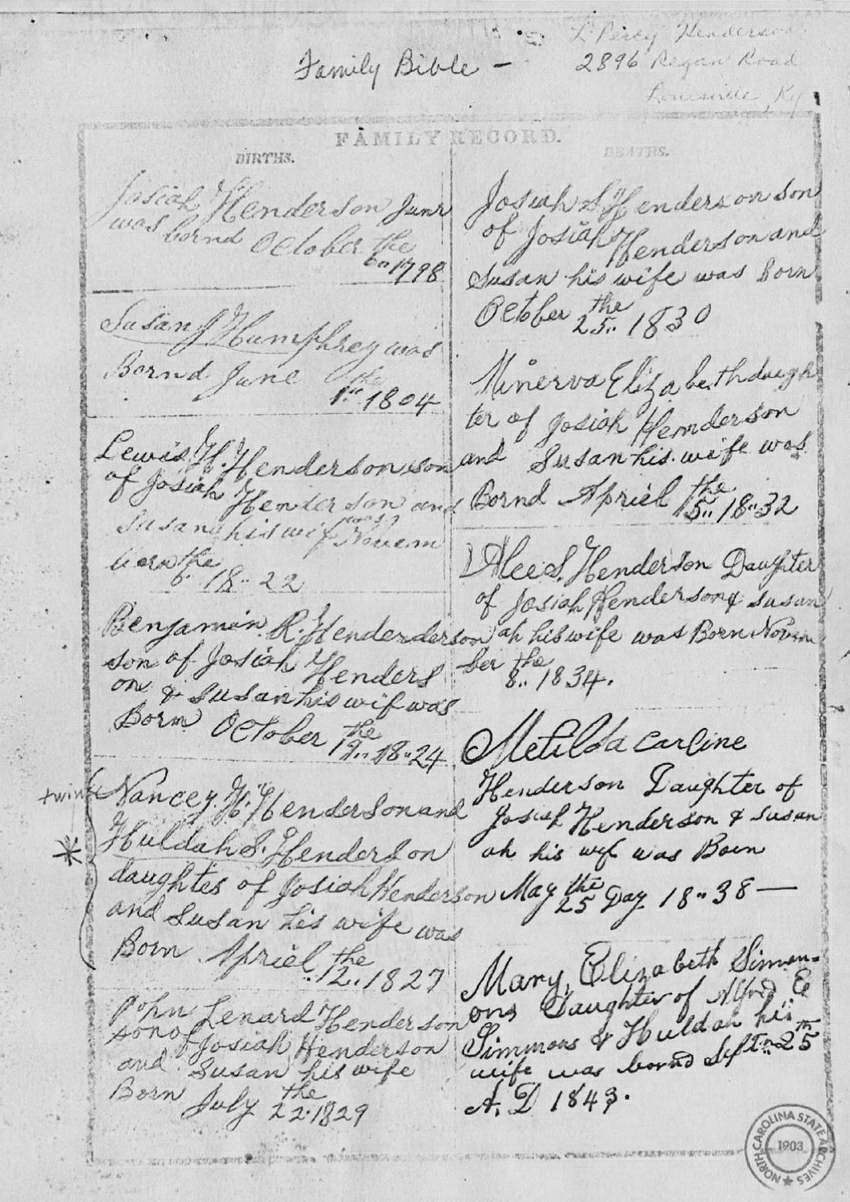 L Percy Henderson
2896 Regan Road
Louisville, Ky
Family Bible —
FAMILY RECORD.
BIRTHS.
Josiah Henderson Junr
was bornd October the
1798
Susan J Humphrey was
Bornd June the
1.. 1804
Lewis H. Henderson son
of Josiah Henderson and
Susan his wif was Novem
the
18..22
Benjamin R. Henderderson
son of Josiah Henders
on & Susan his wif was
Born October the
19.. 18..24
twins
Nancey H. Henderson and
Huldah S. Henderson
daughtes of Josiah Henderson
and Susan his wife was
Born Apriel the
12.. 1827
John Lenard Henderson
son of Josiah Henderson
and Susan his wife
Born July the
22.. 1829
DEATHS.
Josiah S Henderson son
of Josiah Henderson and
Susan his wife was Born
October the
25.. 1830
Minerva Elizabeth daugh
ter of Josiah Henderson
and Susan his wife was
Bornd Apriel the
15.. 18..32
Alce S. Henderson Daughter
of Josiah Henderson & Susan
ah his wife was Born Novem
ber the
8.. 1834.
Metilda Carline
Henderson Daughter of
Josiah Henderson & Susan
ah his wif was Born
May the
25 Day 18..38 —
Mary, Elizabeth Simm-
ons Daughter of Alfred E
Simmons & Huldah his
wife was bornd Sept 25th
A. D 1843.
NORTH CAROLINA STATE ARCHIVES
1903